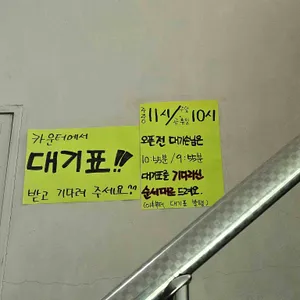 카운터에서
대기표!!
받고 기다려 주세요??
11시/ 10시
오픈전 대기손님은
10:55분 / 9:55분
대기표를 기다리신
순서대로 드려요.